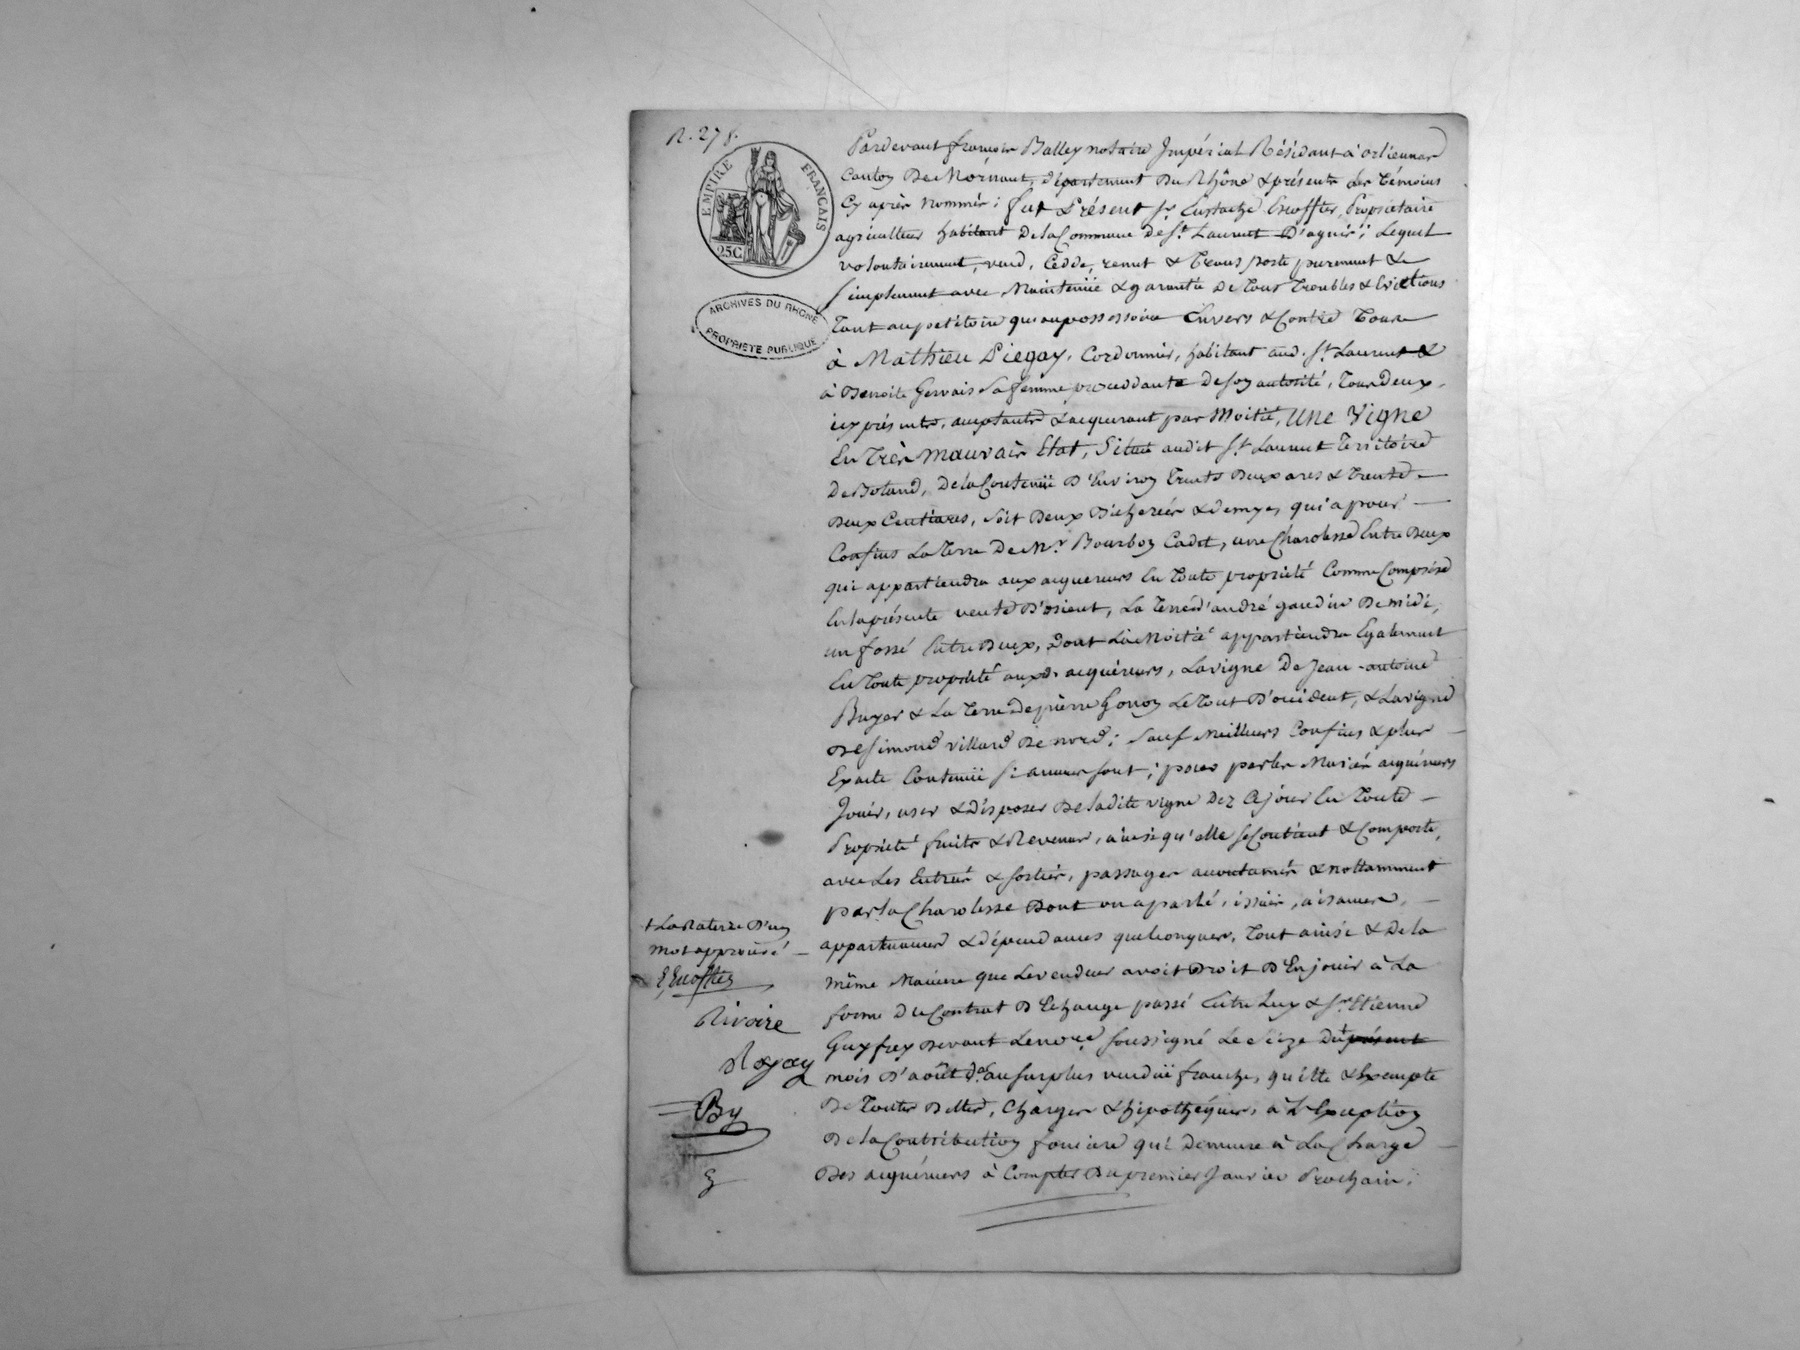 N. 278.
EMPIRE FRANÇAIS
25C
ARCHIVES DU RHÔNE
PROPRIÉTÉ PUBLIQUE
Pardevant françois Balley notaire Impérial Résidant à orliennas
Canton De Mornant, département Du Rhône & présents les témoins
Cy après nommés : fut Présent Sr. Eustache Escoffier, Propriétaire
agriculteur habitant De la Commune de St. Laurent D'agnis ; Lequel
volontairement, vend, Cède, remet & transporte purement &
simplement avec Maintenüe & garantie De tous troubles & Evictions
tant au petitoire qu'au possessoire Envers & Contre tous
à Mathieu Piegay, Cordonnier, habitant aud. St. Laurent &
à Benoite Gervais sa femme procedante de son autorité, tous deux,
icy présents, acceptants & acquerant par Moitié, une Vigne
En très mauvais Etat, Située audit St. Laurent territoire
De Boland, De la Contenüe D'Environ trente Deux ares & trente
Deux Centiares, soit Deux Bicherées & demye, qui a pour
Confins La terre De Mr. Bourbon Cadet, une Charolesse Entre Deux
qui appartiendra aux acquereurs En toute propriété Comme Comprise
En la présente vente D'orient, La terre d'andré gaudin De midi,
un fossé Entre Deux, Dont La Moitié appartiendra Egalement
En toute propriété auxd. acquéreurs, La vigne De Jean-antoine
Buyer & La terre de pierre Gonon Le tout D'occident, & La vigne
De Simond Villard De nord ; sauf Meilleurs Confins & plus
Exacte Contenüe si aucuns sont ; pour par les Mariés acquéreurs
Jouir, user & disposer De ladite vigne Dez Ce jour En toute
Propriété fruits & Revenus, ainsi qu'elle se Contient & Comporte,
avec Les Entrées & sorties, passages accoutumés & nottamment
par la Charolesse Dont on a parlé, issües, aisances,
appartenances & dépendances quelconques, tout ainsi & De la
même Maniere que Le vendeur avoit Droit D'En jouir à La
forme Du Contrat D'Echange passé Entre Luy & Sr. Etienne
Guyfrey Devant Le not.e soussigné Le Seize Du † présent
mois D'août d.er au surplus vendüe franche, quitte & Exempte
De toutes Dettes, Charges & hipothéques, à L'Exception
De la Contribution fonciere qui Demeure à La Charge
Des acquéreurs à Compter Du premier Janvier Prochain.
† La Rature D'un
mot approuvé
E, Escoffier
Rivoire
Royay
By